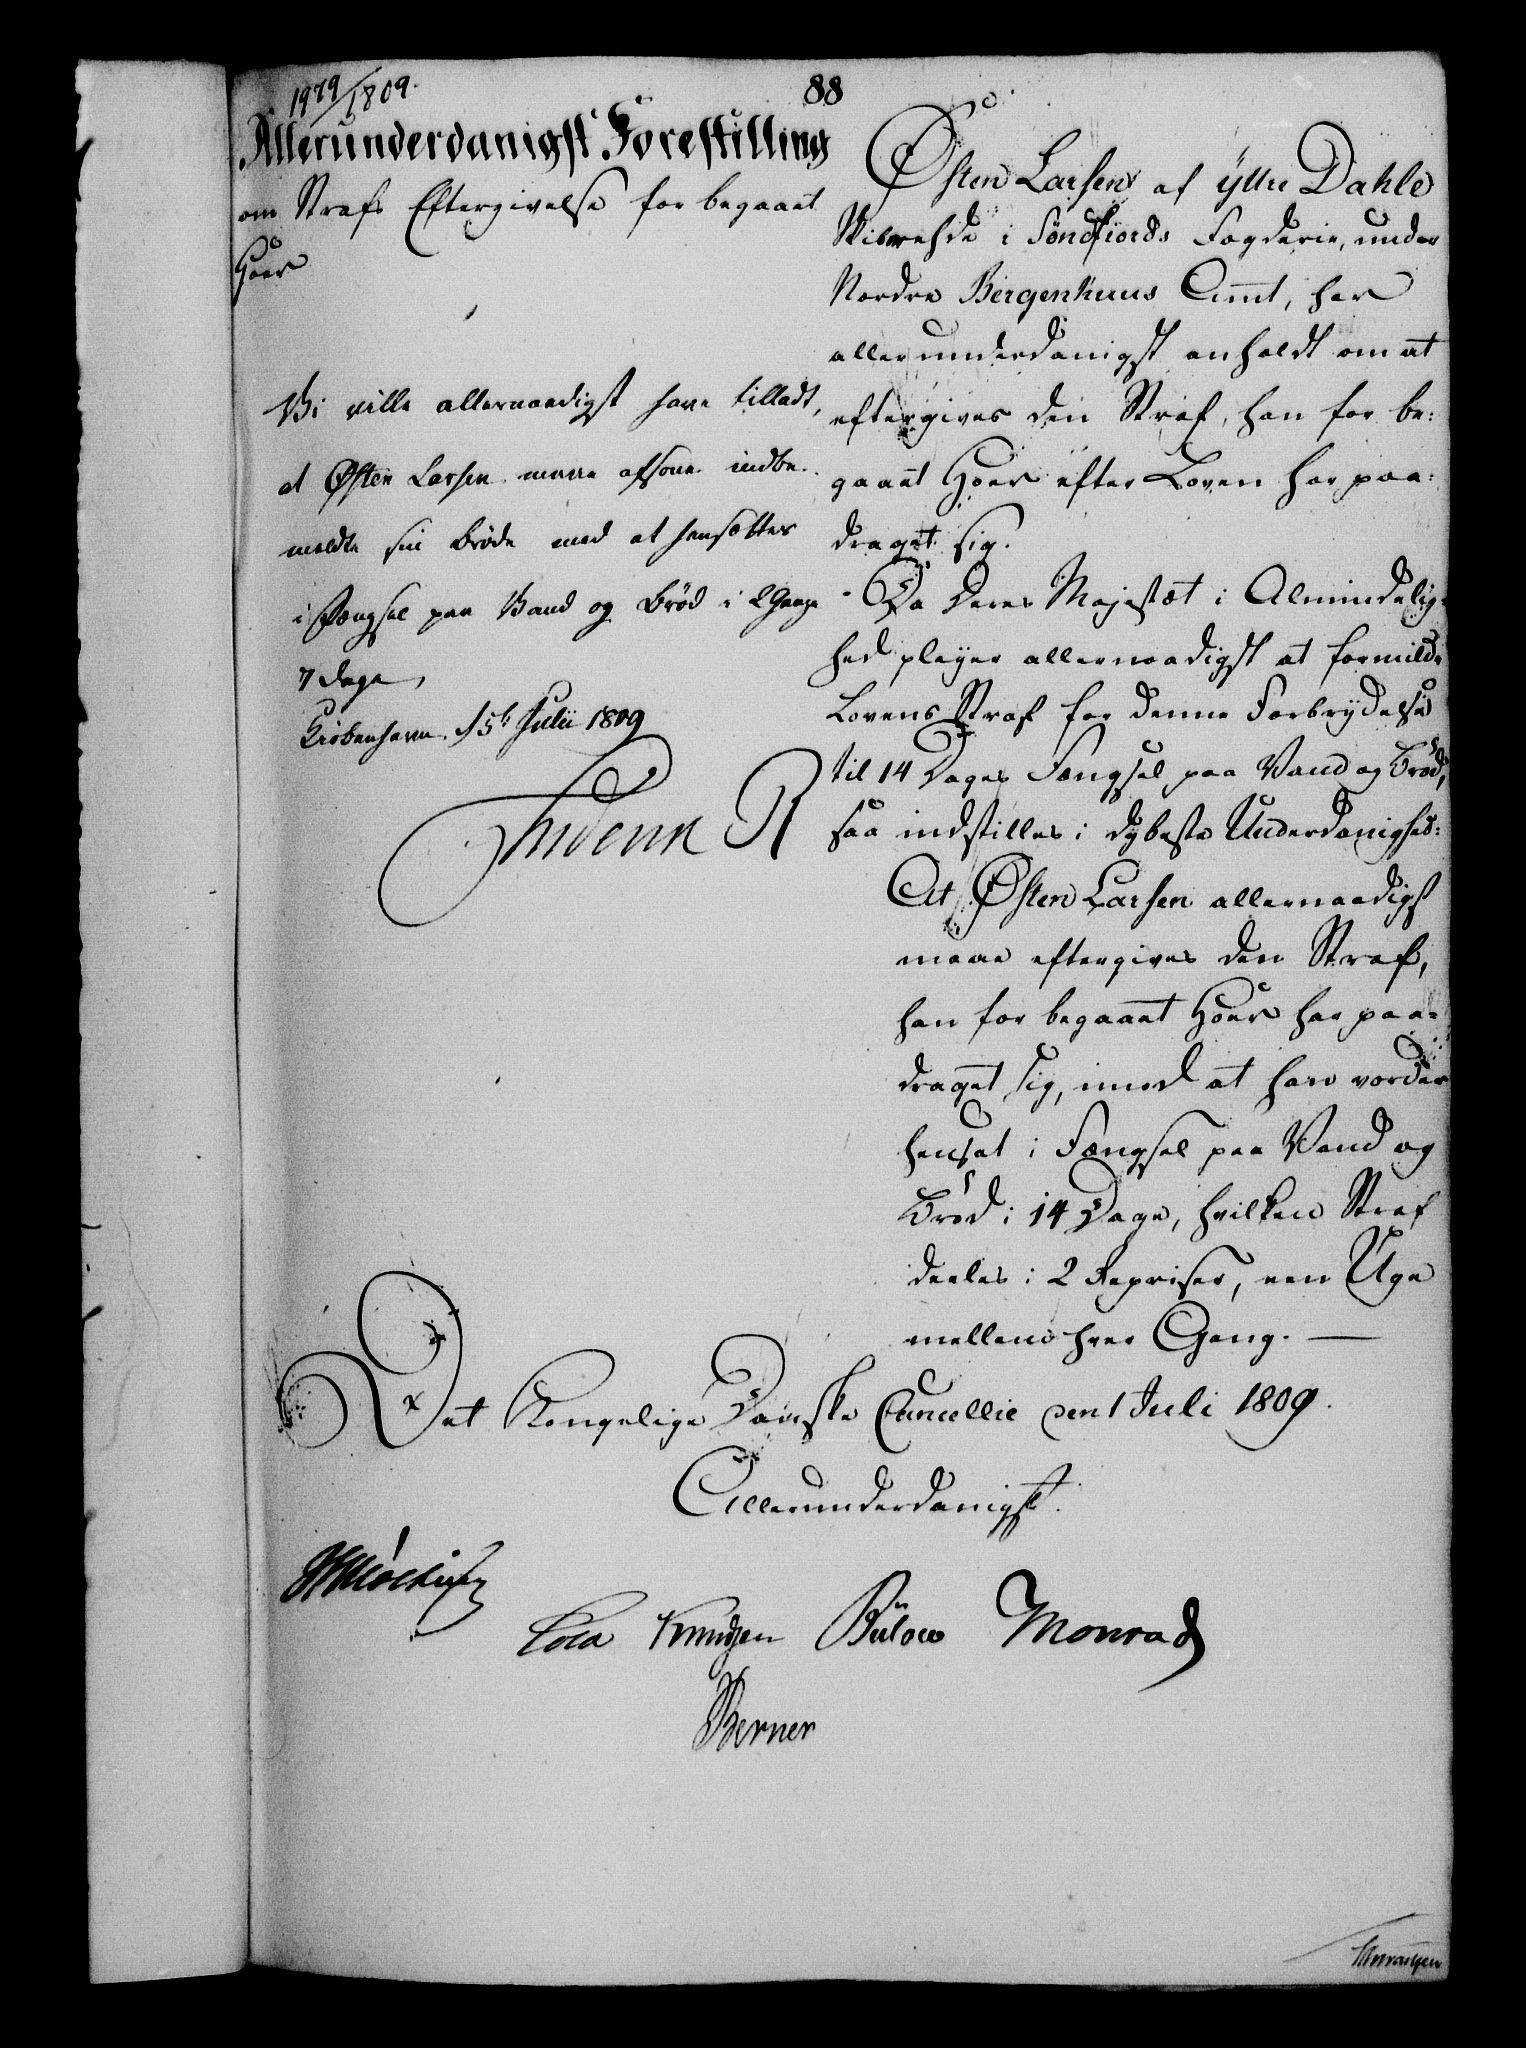 1979/1809.
88
Allerunderdanigst Forestilling
om Strafs Eftergivelse for begaaet
Hoer
Vi ville allernaadigst have tilladt,
at Østen Larsen maae afsone indbe-
meldte sin Brøde med at hensættes
i Fængsel paa Vand og Brød i 2 Gange
7 Dage,
Kiøbenhavn, 15 Julii 1809
Friderik R
Østen Larsen af Yttre Dahle
i Søndfiords Fogderie, under
Nordre Bergenhuus Amt, har
allerunderdanigst anholdt om at
eftergives den Straf, han for be:
gaaet Hoer efter Loven har paa:
draget sig.
Da Deres Majestæt i Almindelig:
hed pleyer allernaadigst at formilde
Lovens Straf for denne Forbrydelse
til 14 Dages Fængsel paa Vand og Brød,
saa indstilles i dybeste Underdanighed:
At Østen Larsen allernaadigst
maae eftergives den Straf,
han for begaaet Hoer har paa=
draget sig, imod at han vorder
hensat i Fængsel paa Vand og
Brød i 14 Dage, hvilken Straf
deeles i 2 Repriser, een Uge
mellem hver Gang. —
Det Kongelige Danske Cancellie den 1 Juli 1809.
Allerunderdanigst.
Cold Knudsen Bülow Monrad
Berner